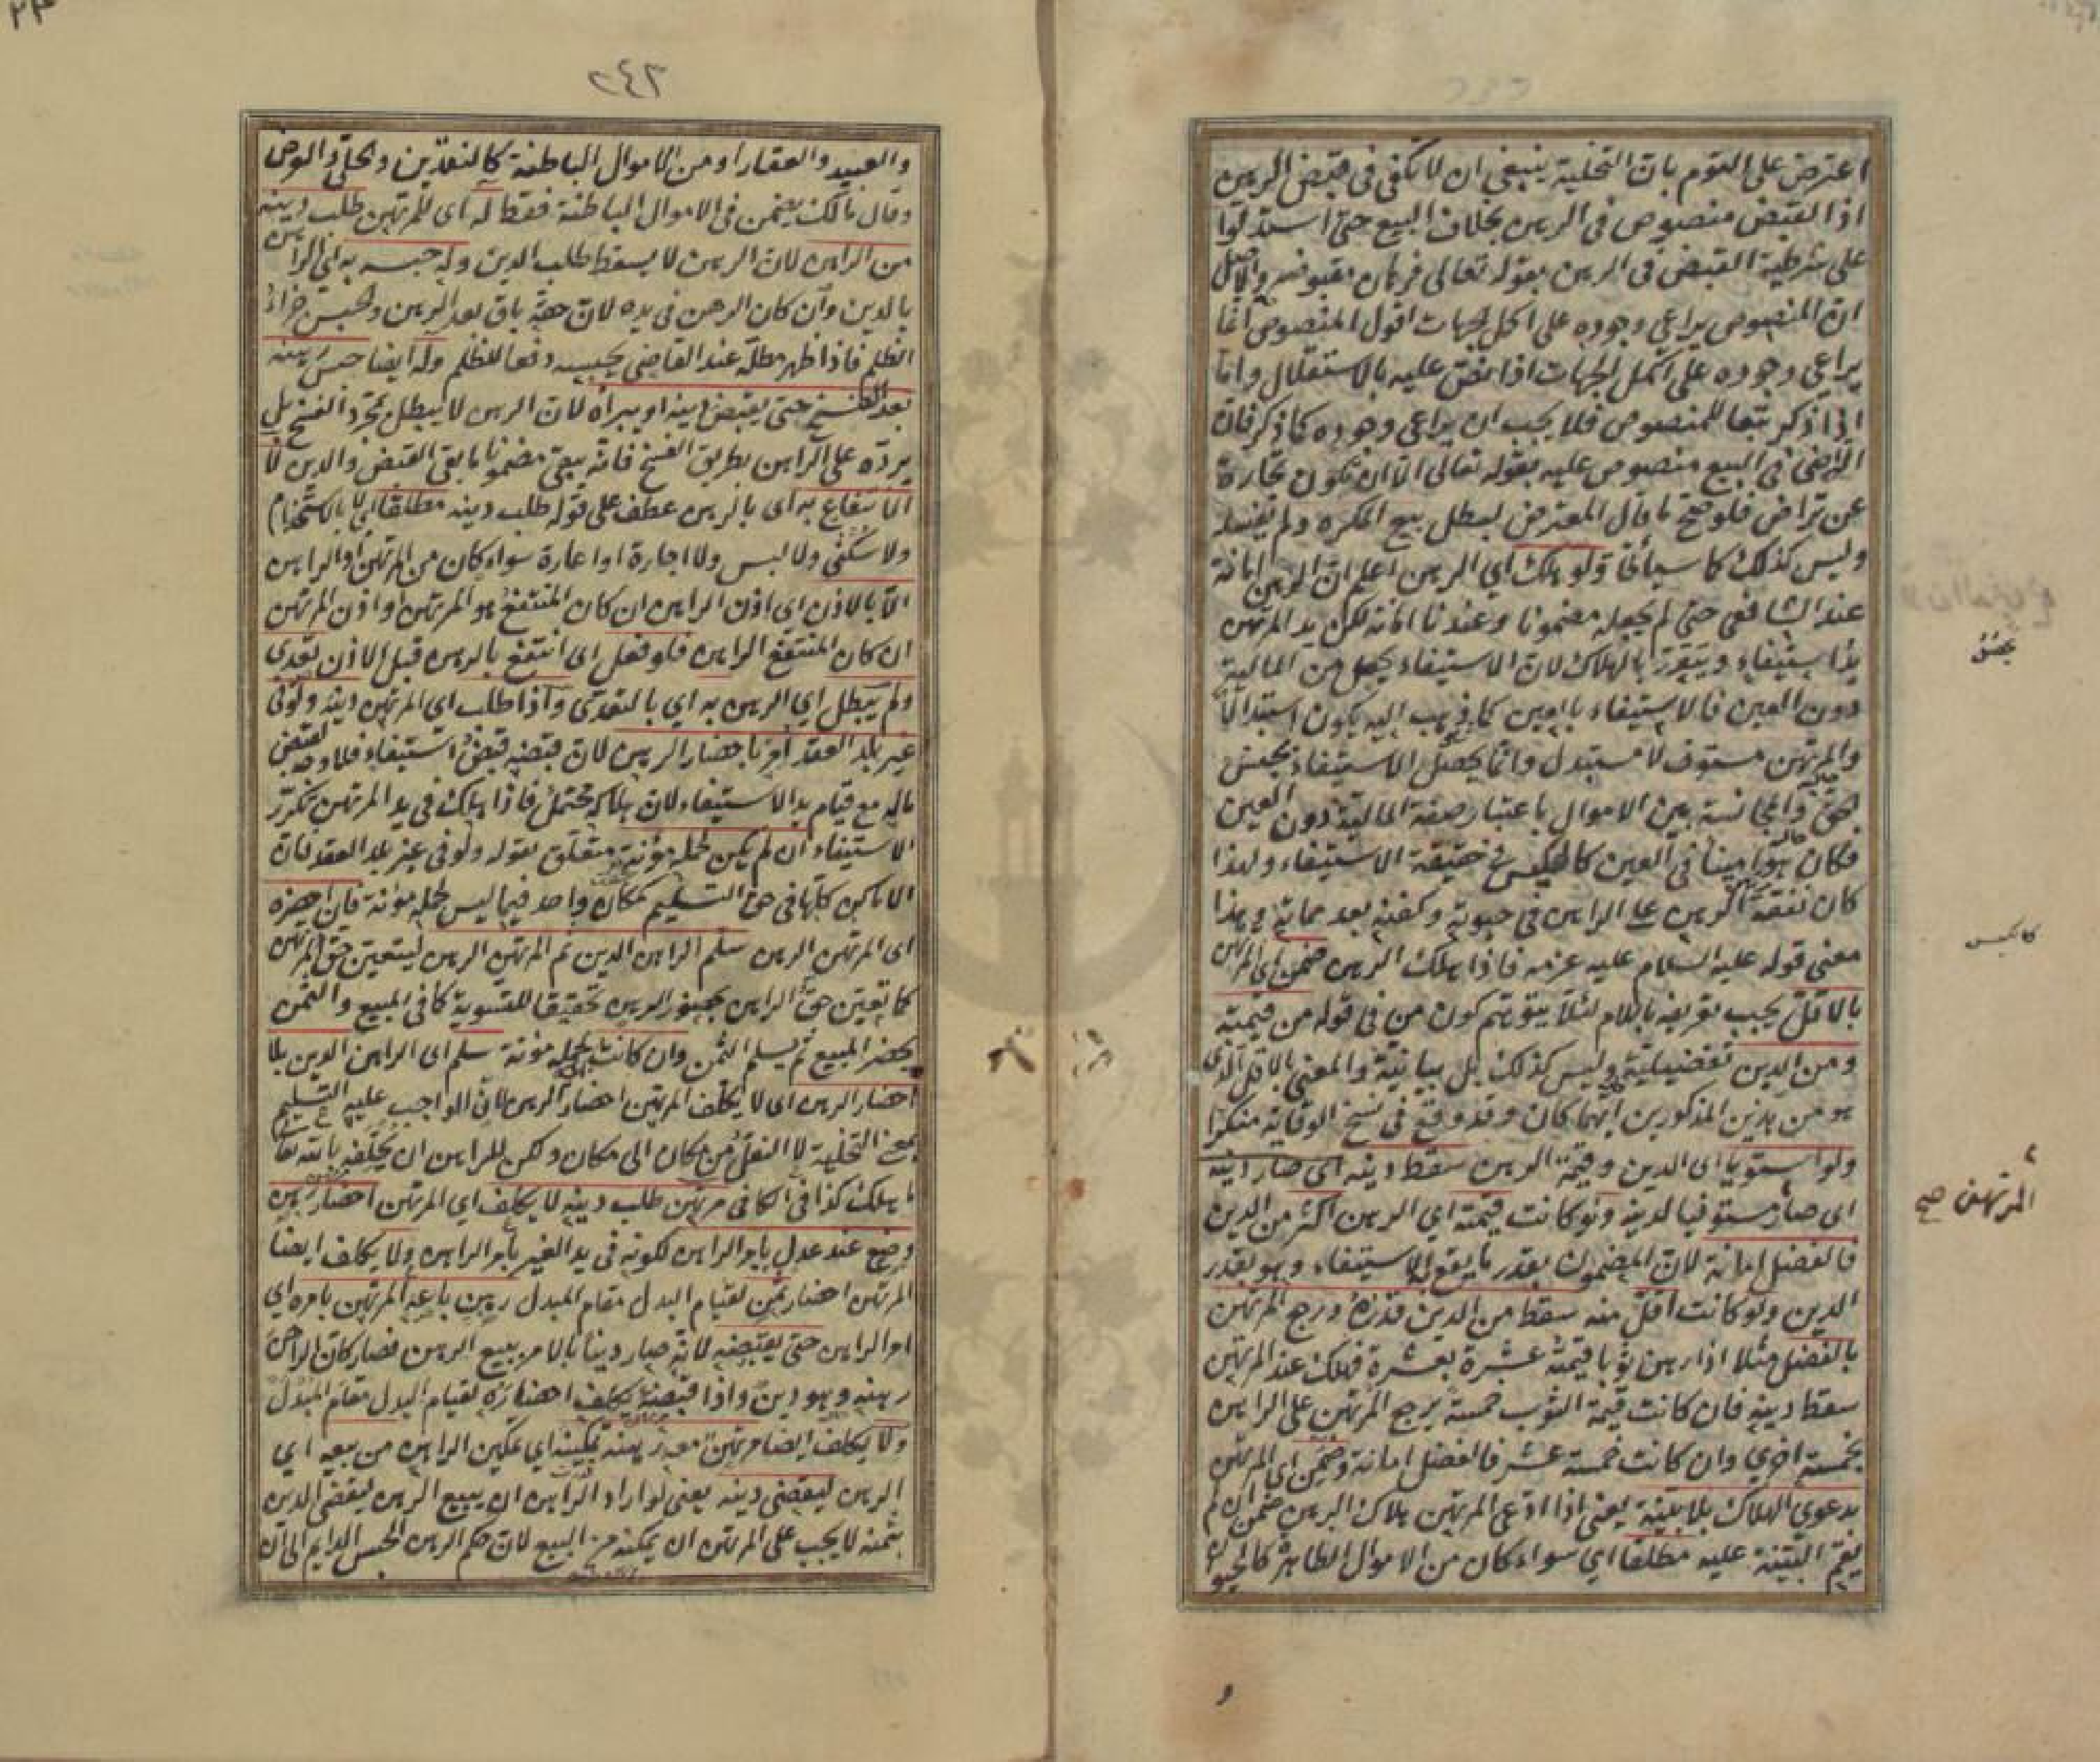 اعترض على القوم بان التخلية ينبغي ان لا تكفي في قبض الرهن
اذ القبض منصوص في الرهن بخلاف البيع حتى استدلوا
على شرطية القبض في الرهن بقوله تعالى فرهان مقبوضة والاصل
ان المنصوص يراعى وجوده على اكمل الجهات اقول المنصوص انما
يراعى وجوده على اكمل الجهات اذا نص عليه بالاستقلال واما
اذا ذكر تبعا للمنصوص فلا يجب ان يراعى وجوده كما ذكر فان
التراضي في البيع منصوص عليه بقوله تعالى الا ان تكون تجارة
عن تراض فلو صح ما قال المعترض لبطل بيع المكره ولم يفسد
وليس كذلك كما سيأتي ولو هلك اي الرهن اعلم ان الرهن امانة
عند الشافعي حتى لم يجعله مضمونا وعندنا امانة لكن يد المرتهن
يد استيفاء ويتقرر بالهلاك لان الاستيفاء يحصل من المالية
دون العين فالاستيفاء بالعين كما ذهب اليه يكون استبدالا
والمرتهن مستوف لا مستبدل وانما يحصل الاستيفاء بجنس
الحق والمجانسة بين الاموال باعتبار صفة المالية دون العين
فكان هو امينا في العين كالكيس في حقيقة الاستيفاء ولهذا
كان نفقة الرهن على الراهن في حيوته وكفنه بعد مماته وهذا
معنى قوله عليه السلام عليه غرمه فاذا هلك الرهن ضمن اي المرتهن
بالاقل يجب تعريفه باللام لئلا يتوهم كون من في قوله من قيمته
ومن الدين تفضيلية وليس كذلك بل بيانية والمعنى بالاقل الذي
هو من هذين المذكورين ايهما كان وقد وقع في نسخ الوقاية منكرا
ولو استويا اي الدين وقيمة الرهن سقط دينه اي صار دينه
اي صار مستوفيا لدينه ولو كانت قيمته اي الرهن اكثر من الدين
فالفضل امانة لان المضمون بقدر ما يقع به الاستيفاء وهو بقدر
الدين ولو كانت اقل منه سقط من الدين قدره ورجع المرتهن
بالفضل مثلا اذا رهن ثوبا قيمته عشرة بعشرة فهلك عند المرتهن
سقط دينه فان كانت قيمة الثوب خمسة يرجع المرتهن على الراهن
بخمسة اخرى وان كانت خمسة عشر فالفضل امانة وضمن اي المرتهن
بدعوى الهلاك بلا بينة يعني اذا ادعى المرتهن هلاك الرهن ضمن ان لم
يقم البينة عليه مطلقا اي سواء كان من الاموال الظاهرة كالحيوان
بجنس
كالكيس
المرتهن صح
و
٢٤٣
والعبيد والعقار او من الاموال الباطنة كالنقدين والحلي والعروض
وقال مالك يضمن في الاموال الباطنة فقط له اي للمرتهن طلب دينه
من الراهن لان الرهن لا يسقط طلب الدين وله حبسه به اي الراهن
بالدين وان كان الرهن في يده لان حقه باق بعد الرهن والحبس جزاء
الظلم فاذا ظهر مطله عند القاضي يحبسه دفعا للظلم وله ايضا حبس رهنه
بعد الفسخ حتى يقبض دينه او يبراه لان الرهن لا يبطل بمجرد الفسخ بل
يرده على الراهن بطريق الفسخ فانه يبقى مضمونا ما بقي القبض والدين لا
الانتفاع به اي بالرهن عطف على قوله طلب دينه مطلقا اي لا بالاستخدام
ولا سكنى ولا لبس ولا اجارة او اعارة سواء كان من المرتهن او الراهن
الا بالاذن اي اذن الراهن ان كان المنتفع هو المرتهن او اذن المرتهن
ان كان المنتفع الراهن فلو فعل اي انتفع بالرهن قبل الاذن تعدى
ولم يبطل اي الرهن به اي بالتعدي واذا طلب اي المرتهن دينه ولو في
غير بلد العقد امر باحضار الرهن لان قبضه قبض استيفاء فلا وجه لقبض
ماله مع قيام يد الاستيفاء لان هلاكه محتمل فاذا هلك في يد المرتهن تكرر
الاستيفاء ان لم يكن لحمله مؤنة متعلق بقوله ولو في غير بلد العقد لان
الاماكن كلها في حق التسليم كمكان واحد فيما ليس لحمله مؤنة فان احضره
اي المرتهن الرهن سلم الراهن الدين ثم المرتهن الرهن ليتعين حق المرتهن
كما تعين حق الراهن بحضور الرهن تحقيقا للتسوية كما في المبيع والثمن
يحضر المبيع ثم يسلم الثمن وان كانت لحمله مؤنة سلم اي الراهن الدين بلا
احضار الرهن اي لا يكلف المرتهن احضار الرهن لان الواجب عليه التسليم
بمعنى التخلية لا النقل من مكان الى مكان ولكن للراهن ان يحلفه بالله تعالى
ما هلك كذا في الكافي مرتهن طلب دينه لا يكلف اي المرتهن احضار رهن
وضع عند عدل بامر الراهن لكونه في يد الغير بامر الراهن ولا يكلف ايضا
المرتهن احضار ثمن لقيام البدل مقام المبدل رهن باعه المرتهن بامره اي
امر الراهن حتى يقبضه لانه صار دينا بالامر ببيع الرهن فصار كان الراهن
رهنه وهو دين واذا قبضه يكلف احضاره لقيام البدل مقام المبدل
ولا يكلف ايضا مرتهن معه رهنه تمكينه اي تمكين الراهن من بيعه اي
الرهن ليقضي دينه يعني لو اراد الراهن ان يبيع الرهن ليقضي الدين
بثمنه لا يجب على المرتهن ان يمكنه من البيع لان حكم الرهن الحبس الدايم الى ان